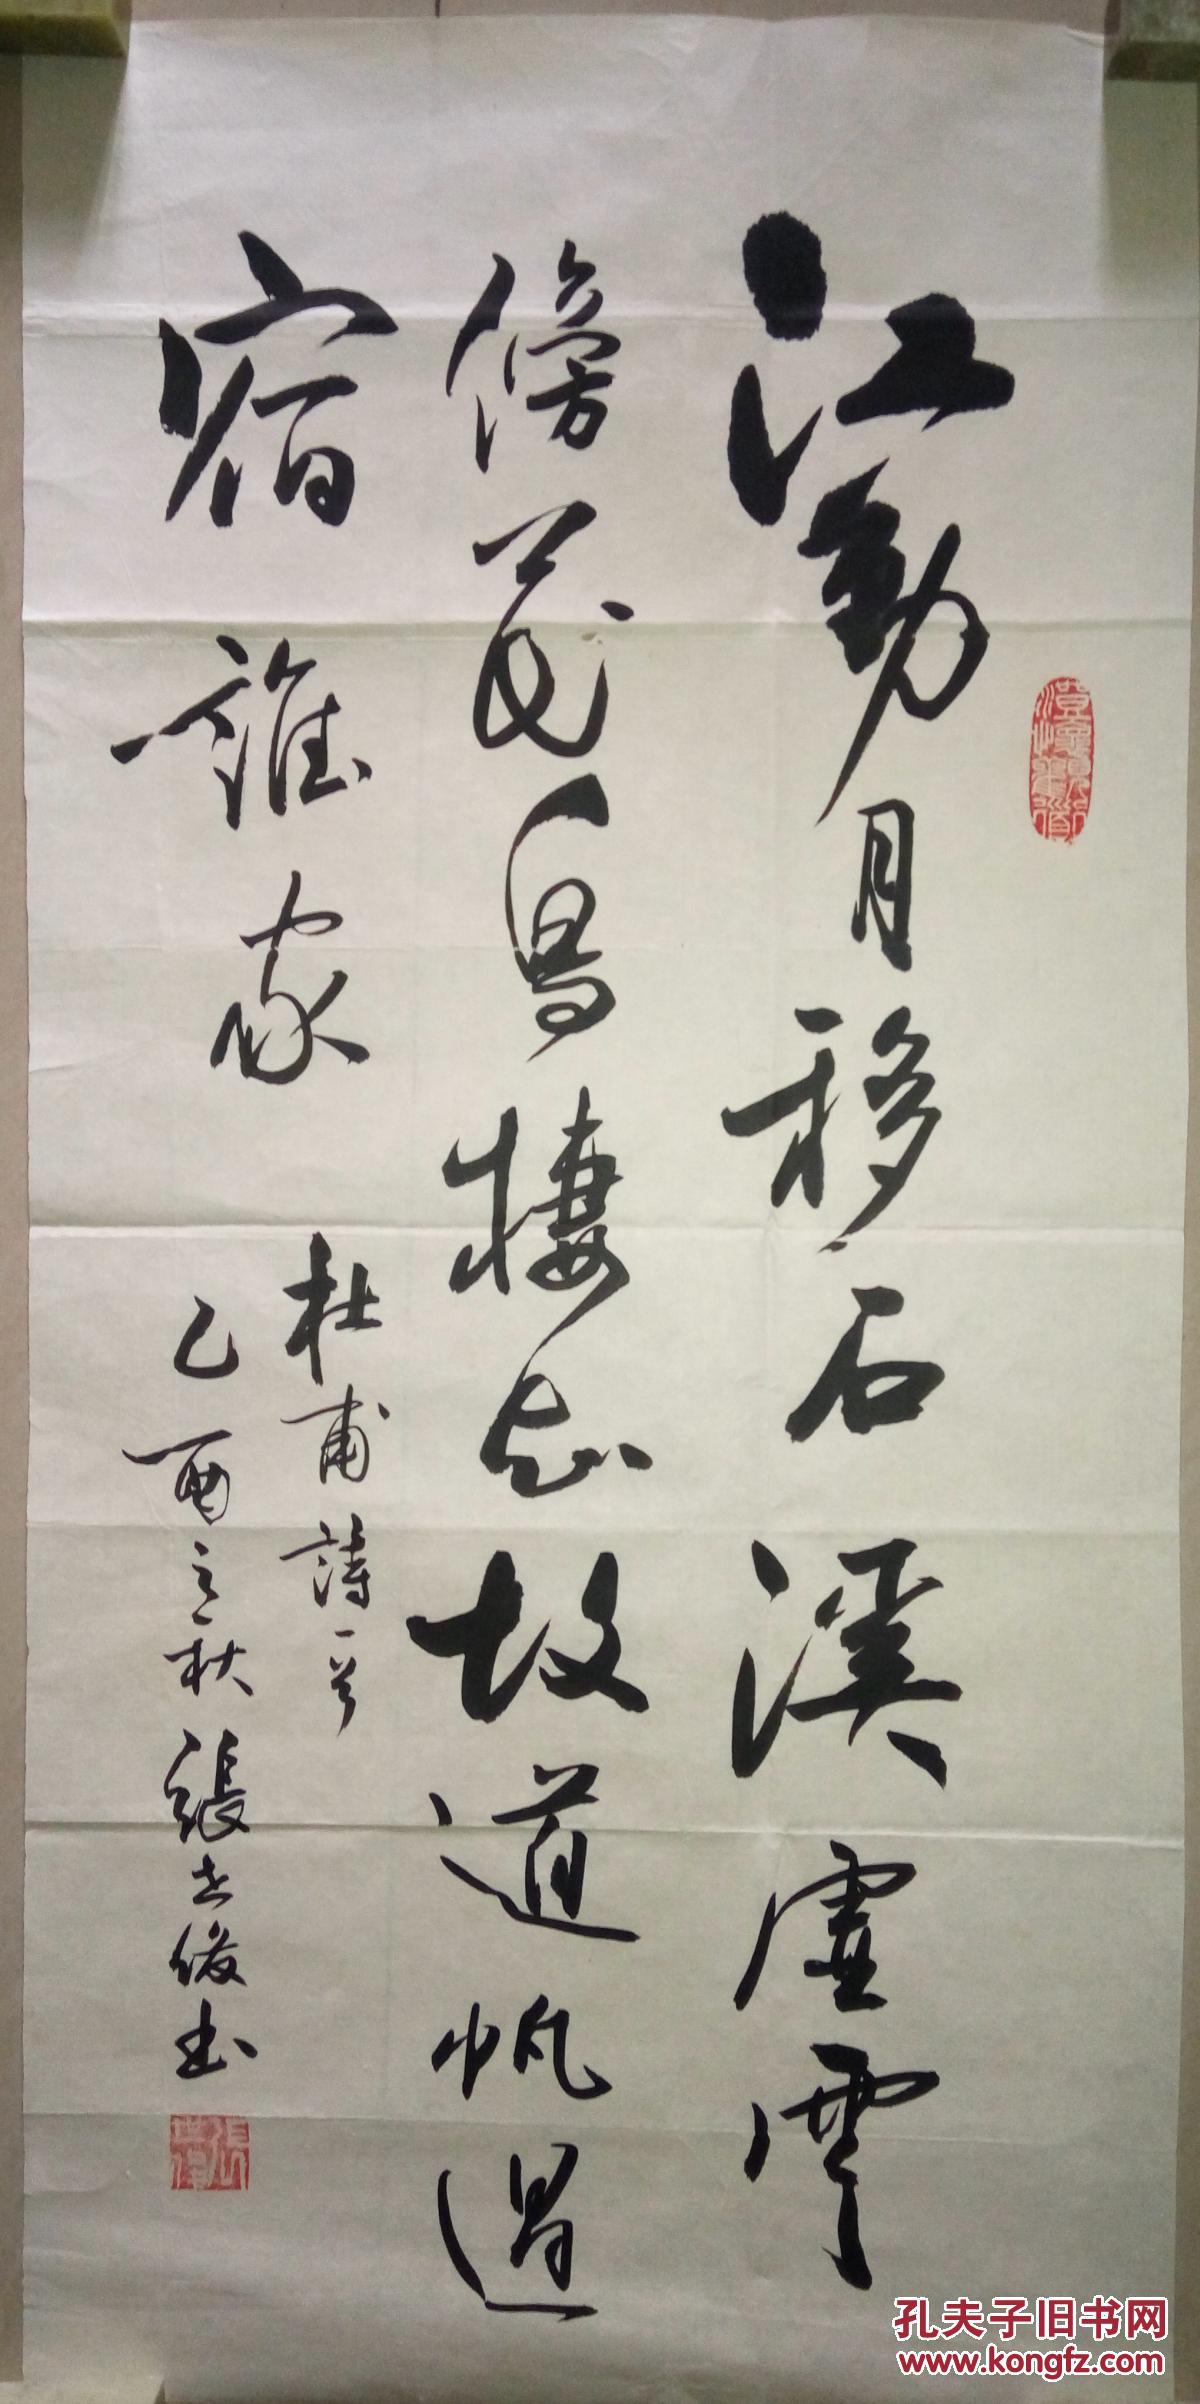 江動月移石溪虚雲
傍花鳥棲知故道帆過
宿誰家
杜甫詩一首
乙酉之秋張世俊書
澄懷觀道
張世俊
孔夫子旧书网
www.kongfz.com